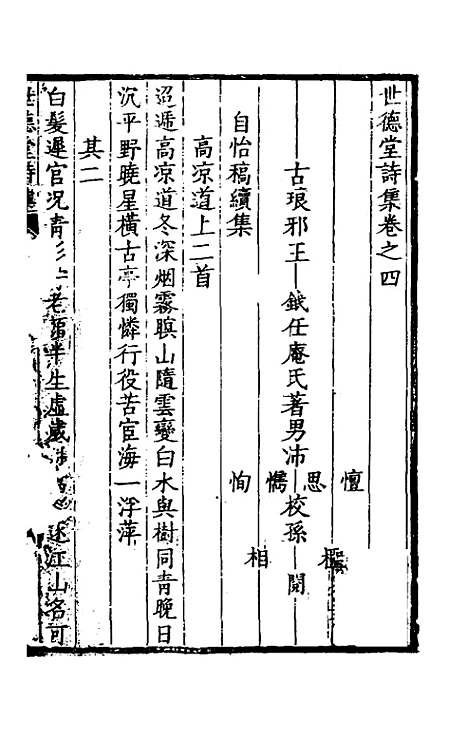 世德堂詩集卷之四
古琅邪王鉞任庵氏著男沛思校孫
懁
恂
檀
相
閱
自怡稿續集
高凉道上二首
迢遞高凉道冬深烟霧瞑山隨雲變白水與樹同青晚日
沉平野曉星橫古亭獨憐行役苦宦海一浮萍
其二
白髮遲官况青老萬半生虛歲江山客可